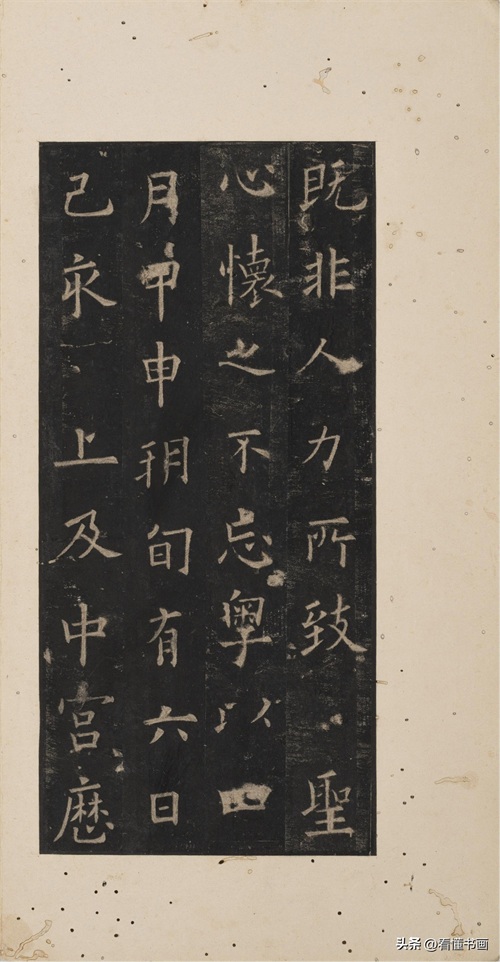 既非人力所致 聖
心懷之不忘粵以四
月甲申朔旬有六日
己亥 上及中宮歷
头条 @看懂书画